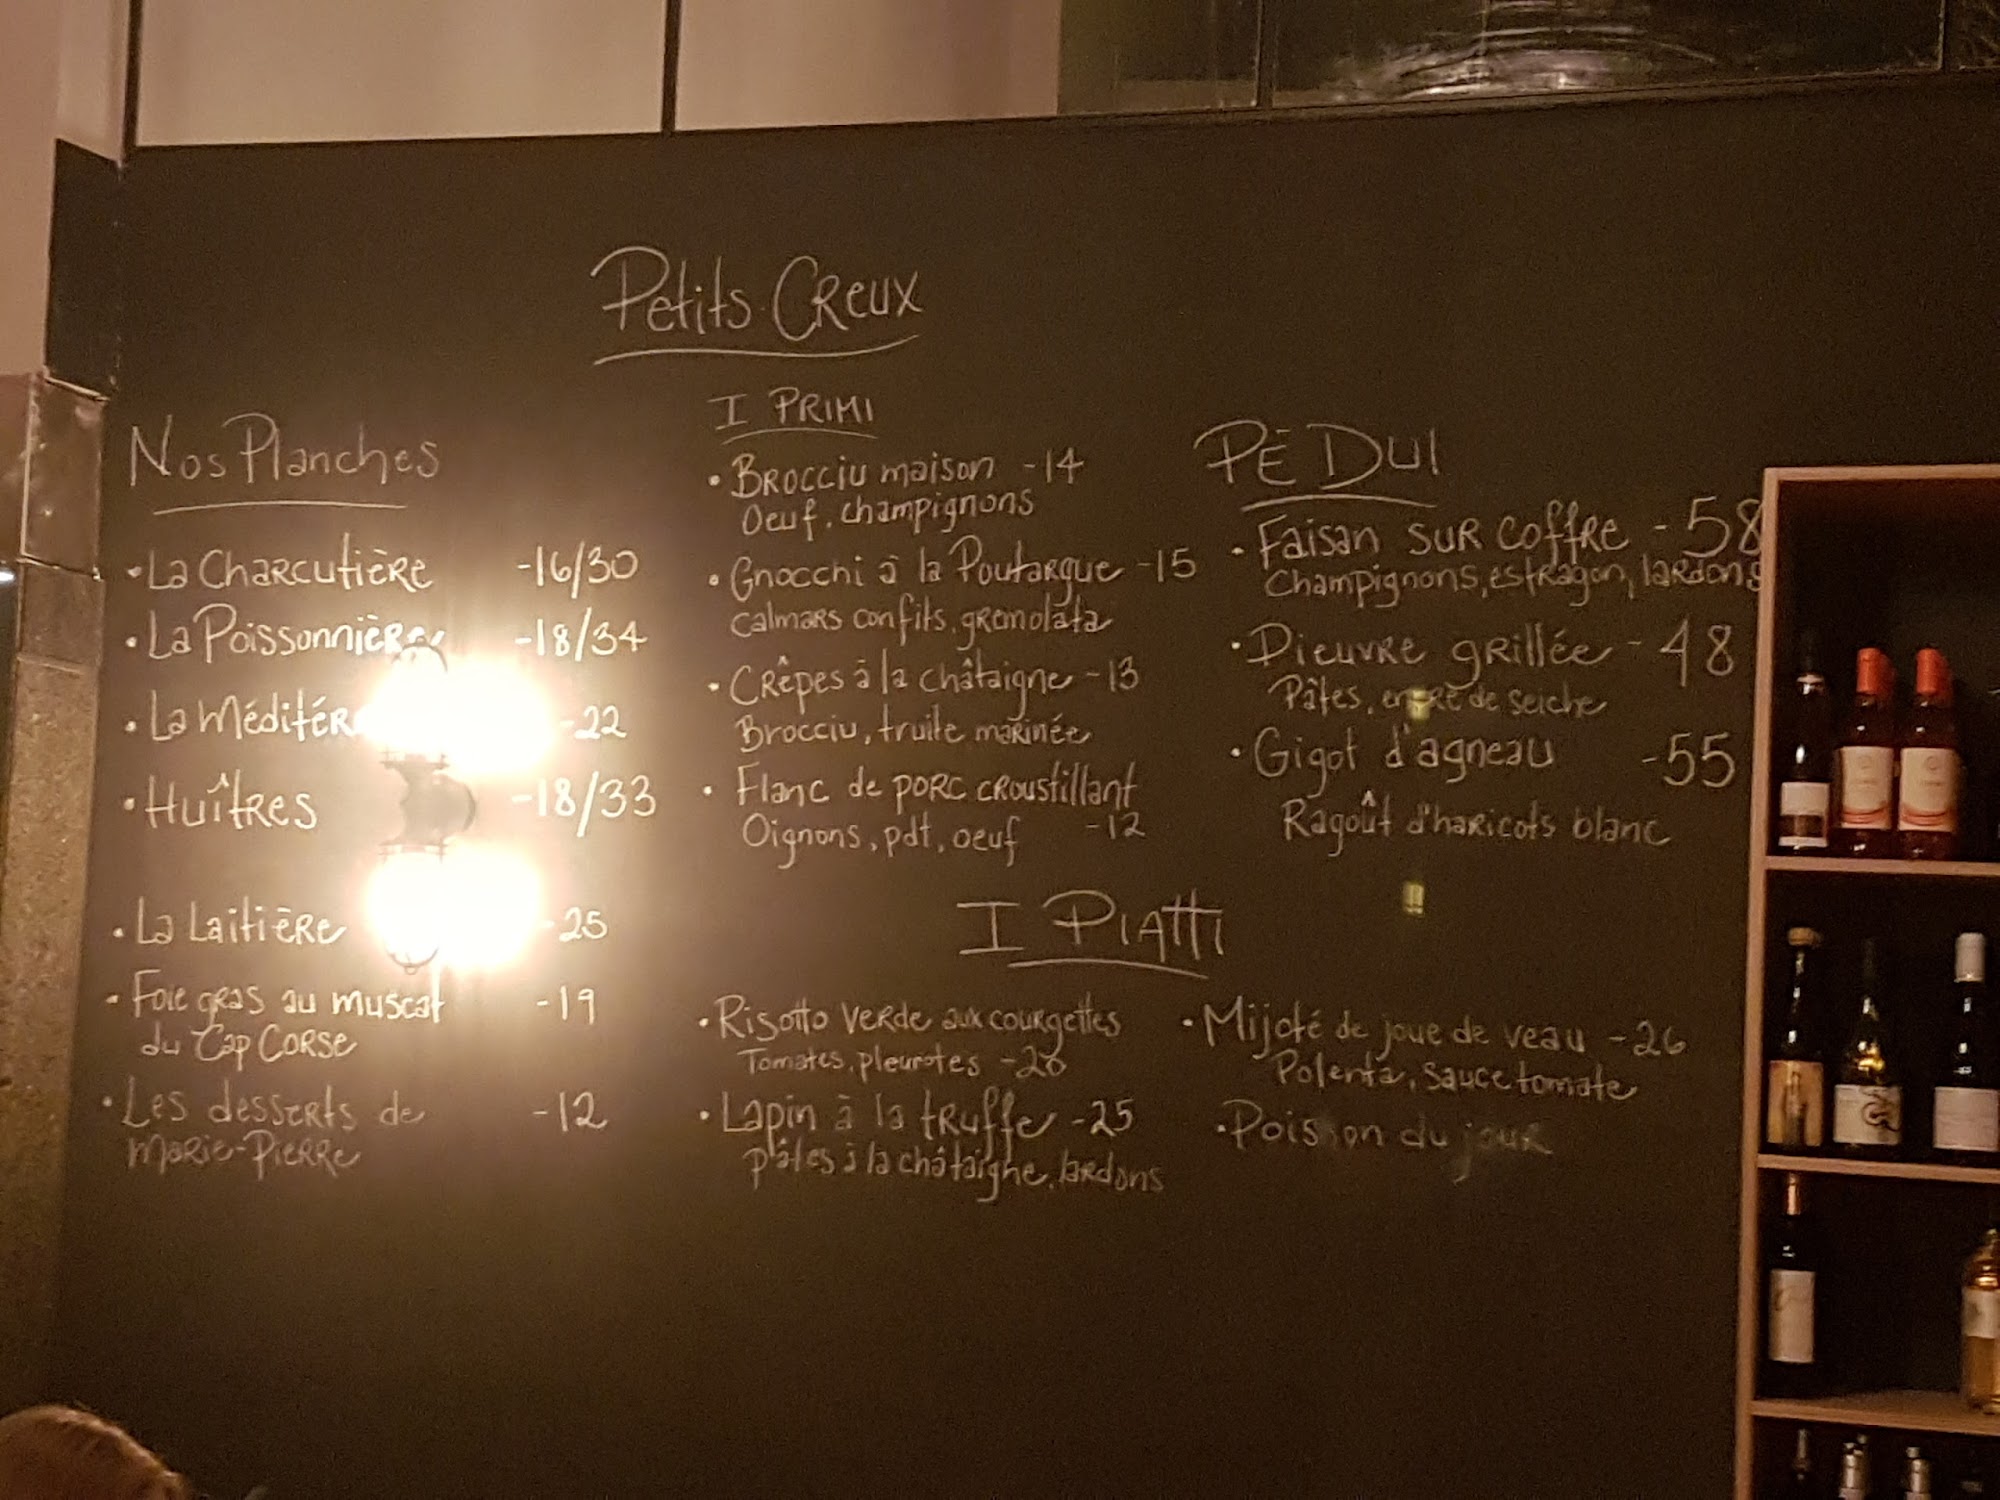 Petits Creux
Nos Planches
• La Charcutière -16/30
• La Poissonnière -18/34
• La Méditér -22
• Huîtres -18/33
• La Laitière -25
• Foie gras au muscat -19
du Cap Corse
• Les desserts de -12
Marie-Pierre
I PRIMI
• Brocciu maison -14
Oeuf, champignons
• Gnocchi à la Poutargue -15
Calmars confits, gremolata
• Crêpes à la châtaigne -13
Brocciu, truite marinée
• Flanc de porc croustillant
Oignons, pdt, oeuf -12
PÈ DUI
• Faisan sur coffre - 58
Champignons, estragon, lardons
• Pieuvre grillée - 48
Pâtes, encre de seiche
• Gigot d'agneau -55
Ragoût d'haricots blanc
I PIATTI
• Risotto verde aux courgettes
Tomates, pleurotes
• Lapin à la truffe -25
pâtes à la châtaigne, lardons
• Mijoté de joue de veau -26
Polenta, sauce tomate
• Poisson du jour